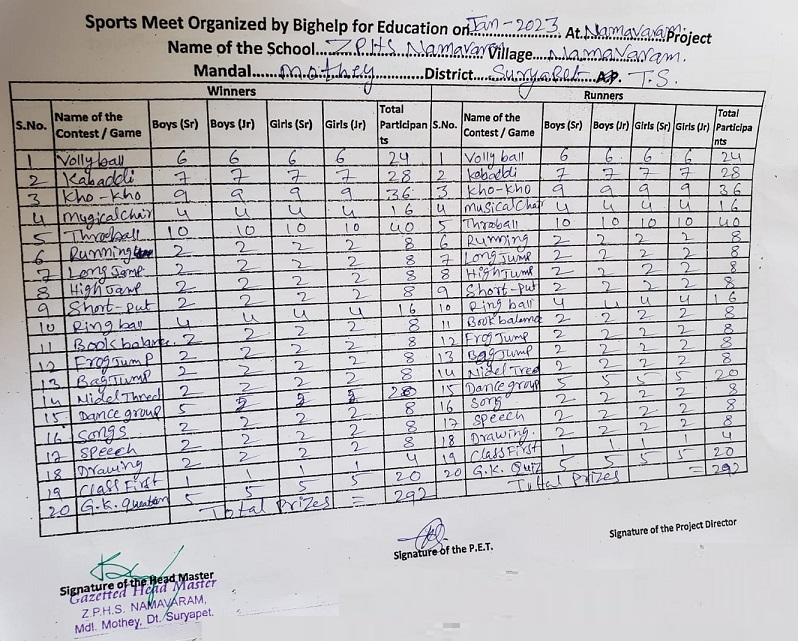 Sports Meet Organized by Bighelp for Education on Jan-2023. At Namavaram Project
Name of the School Z.P.H.S. Namavaram Village Namavaram.
Mandal mothey District Suryapet AP. T.S.
Winners Runners
S.No. Name of the Contest / Game Boys (Sr) Boys (Jr) Girls (Sr) Girls (Jr) Total Participan ts S.No. Name of the Contest / Game Boys (Sr) Boys (Jr) Girls (Sr) Girls (Jr) Total Participa nts
1 Volly ball 6 6 6 6 24 1 Volly ball 6 6 6 6 24
2 Kabaddi 7 7 7 7 28 2 Kabaddi 7 7 7 7 28
3 Kho-Kho 9 9 9 9 36 3 Kho-Kho 9 9 9 9 36
4 Mugical Chair 4 4 4 4 16 4 Musical Chair 4 4 4 4 16
5 Throball 10 10 10 10 40 5 Throball 10 10 10 10 40
6 Running 2 2 2 2 8 6 Running 2 2 2 2 8
7 Long Jump 2 2 2 2 8 7 Long Jump 2 2 2 2 8
8 High Jump 2 2 2 2 8 8 High Jump 2 2 2 2 8
9 Short-put 2 2 2 2 8 9 Short-put 2 2 2 2 8
10 Ring ball 4 4 4 4 16 10 Ring ball 4 4 4 4 16
11 Book balance 2 2 2 2 8 11 Book balance 2 2 2 2 8
12 Frog Jump 2 2 2 2 8 12 Frog Jump 2 2 2 2 8
13 Bag Jump 2 2 2 2 8 13 Bag Jump 2 2 2 2 8
14 Nidel Thred 2 2 2 2 8 14 Nidel Tred 2 2 2 2 8
15 Dance group 5 5 5 5 20 15 Dance group 5 5 5 5 20
16 Songs 2 2 2 2 8 16 Song 2 2 2 2 8
17 Speech 2 2 2 2 8 17 Speech 2 2 2 2 8
18 Drawing 2 2 2 2 8 18 Drawing. 2 2 2 2 8
19 Class First 1 1 1 1 4 19 Class First 1 1 1 1 4
20 G.K. Question 5 5 5 5 20 20 G.K. Quiz 5 5 5 5 20
Total Prizes = 292 Total Prizes = 292
Signature of the Head Master Signature of the P.E.T. Signature of the Project Director
Gazetted Head Master
Z.P.H.S. NAMAVARAM,
Mdl. Mothey, Dt. Suryapet.